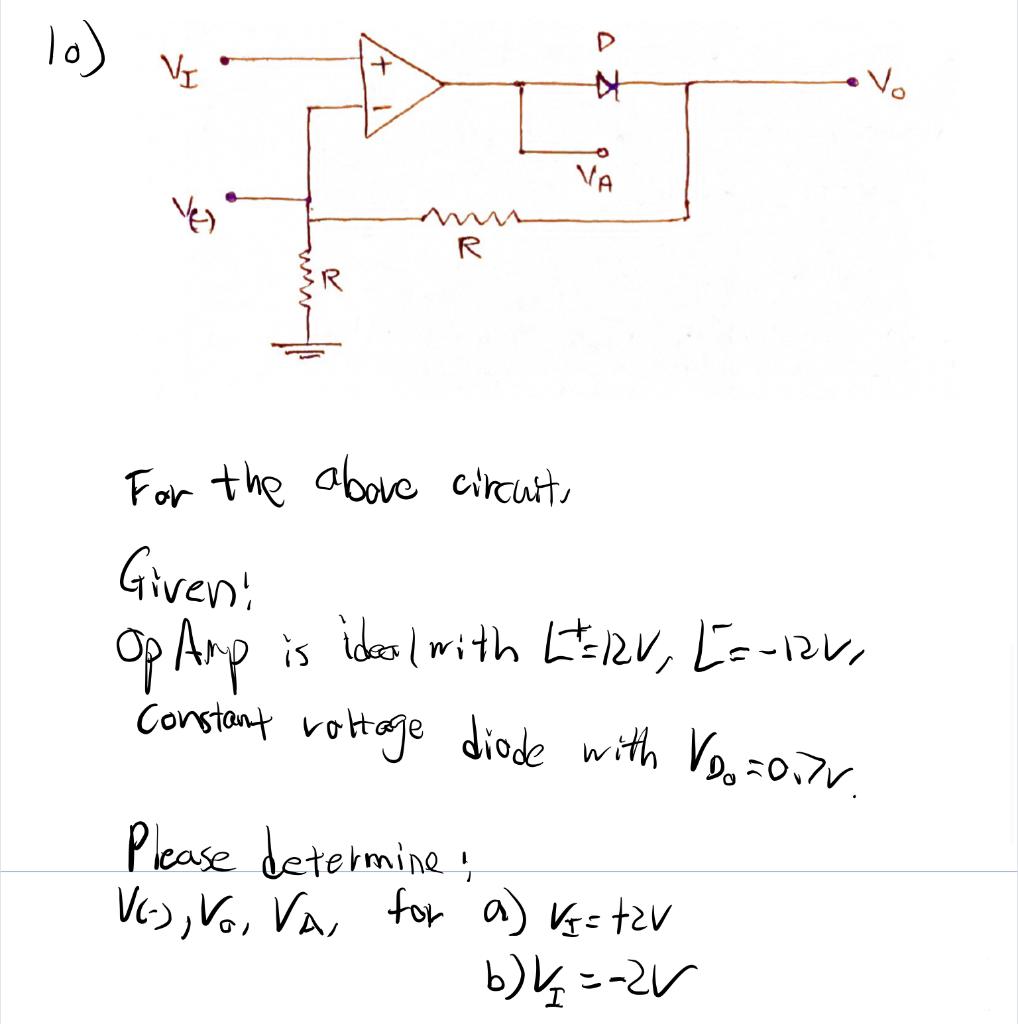 10)
D
V_I
+
−
V_o
V_A
V(-)
R
R
For the above circuit,
Given:
Op Amp is ideal with L⁺=12V, L⁻=-12V,
Constant voltage diode with V_D₀=0.7V.
Please determine:
V(-), V_o, V_A, for a) V_I=+2V
b) V_I=-2V